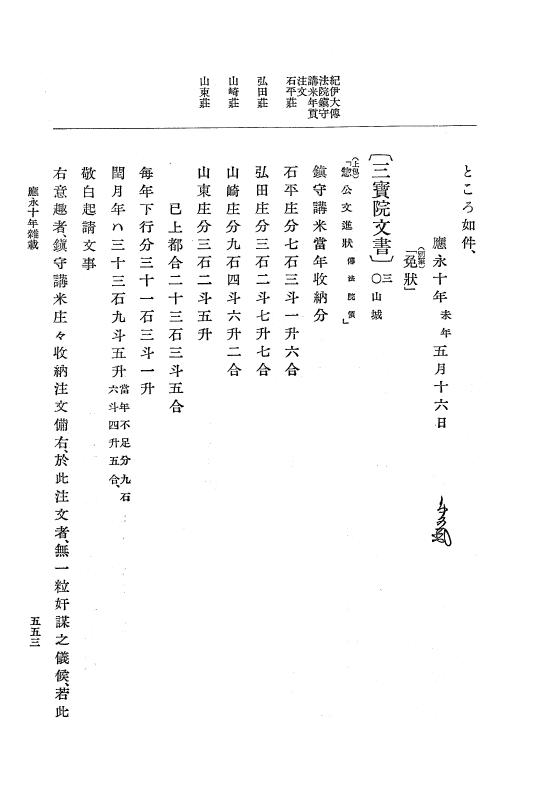 ところ如件、
應永十年未年五月十六日
(別筆)
「免狀」
〔三寶院文書〕三〇山城
(上包)
「惣公文進狀傳法院領」
紀伊大傳
法院鎭守
講米年貢
注文
鎭守講米當年收納分
石平莊
石平庄分七石三斗一升六合
弘田莊
弘田庄分三石二斗七升七合
山崎莊
山崎庄分九石四斗六升二合
山東莊
山東庄分三石二斗五升
已上都合二十三石三斗五合
每年下行分三十一石三斗一升
閏月年ハ三十三石九斗五升當年不足分九石
六斗四升五合、
敬白起請文事
右意趣者、鎭守講米庄々收納注文備右、於此注文者、無一粒奸謀之儀候、若此
應永十年雜載
五五三